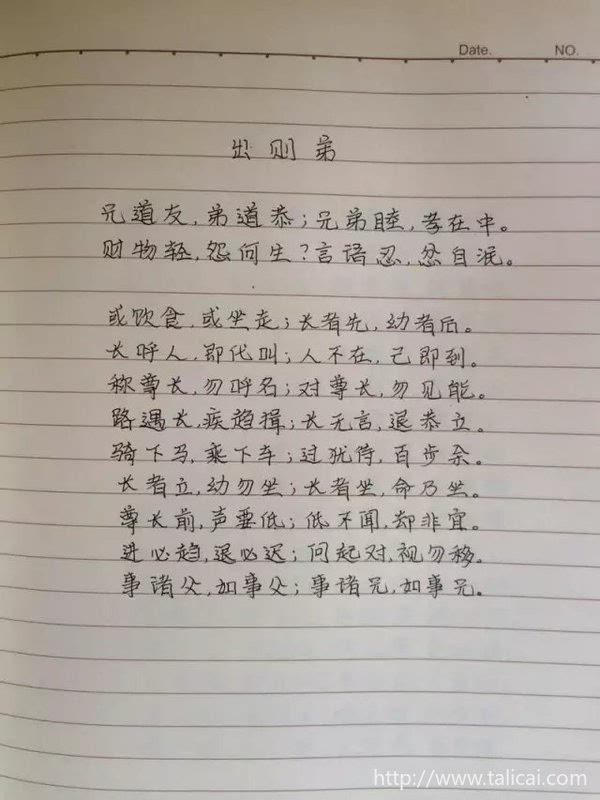 Date. NO.
出则弟
兄道友,弟道恭;兄弟睦,孝在中。
财物轻,怨何生?言语忍,忿自泯。
或饮食,或坐走;长者先,幼者后。
长呼人,即代叫;人不在,己即到。
称尊长,勿呼名;对尊长,勿见能。
路遇长,疾趋揖;长无言,退恭立。
骑下马,乘下车;过犹待,百步余。
长者立,幼勿坐;长者坐,命乃坐。
尊长前,声要低;低不闻,却非宜。
进必趋,退必迟;问起对,视勿移。
事诸父,如事父;事诸兄,如事兄。
http://www.talicai.com